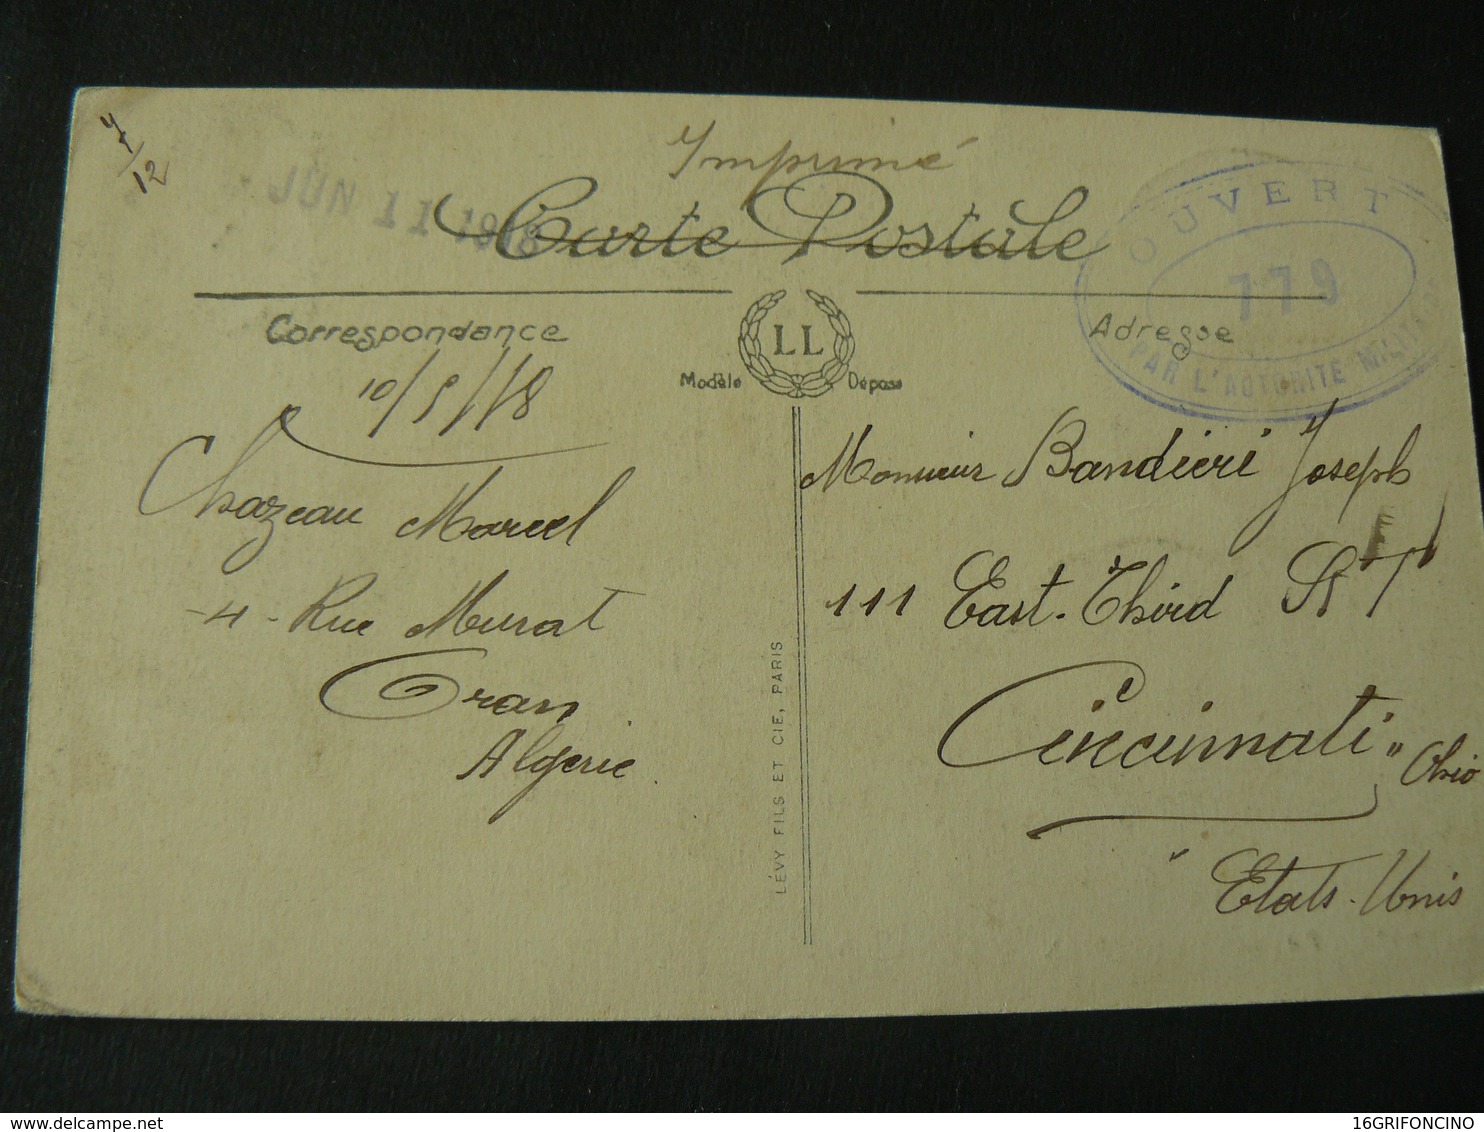 7/12
Imprimé
JUN 11 1918
Carte Postale
OUVERT
779
PAR L'AUTORITÉ MILITAIRE
Correspondance
LL
Modèle Déposé
Adresse
10/5/18
Chazeau Marcel
-4- Rue Murat
Oran
Algerie.
LÉVY FILS ET CIE, PARIS
Monsieur Bandiéri Joseph
111 East-Third St
Cincinnati" Ohio
" Etats-Unis
www.delcampe.net
16GRIFONCINO